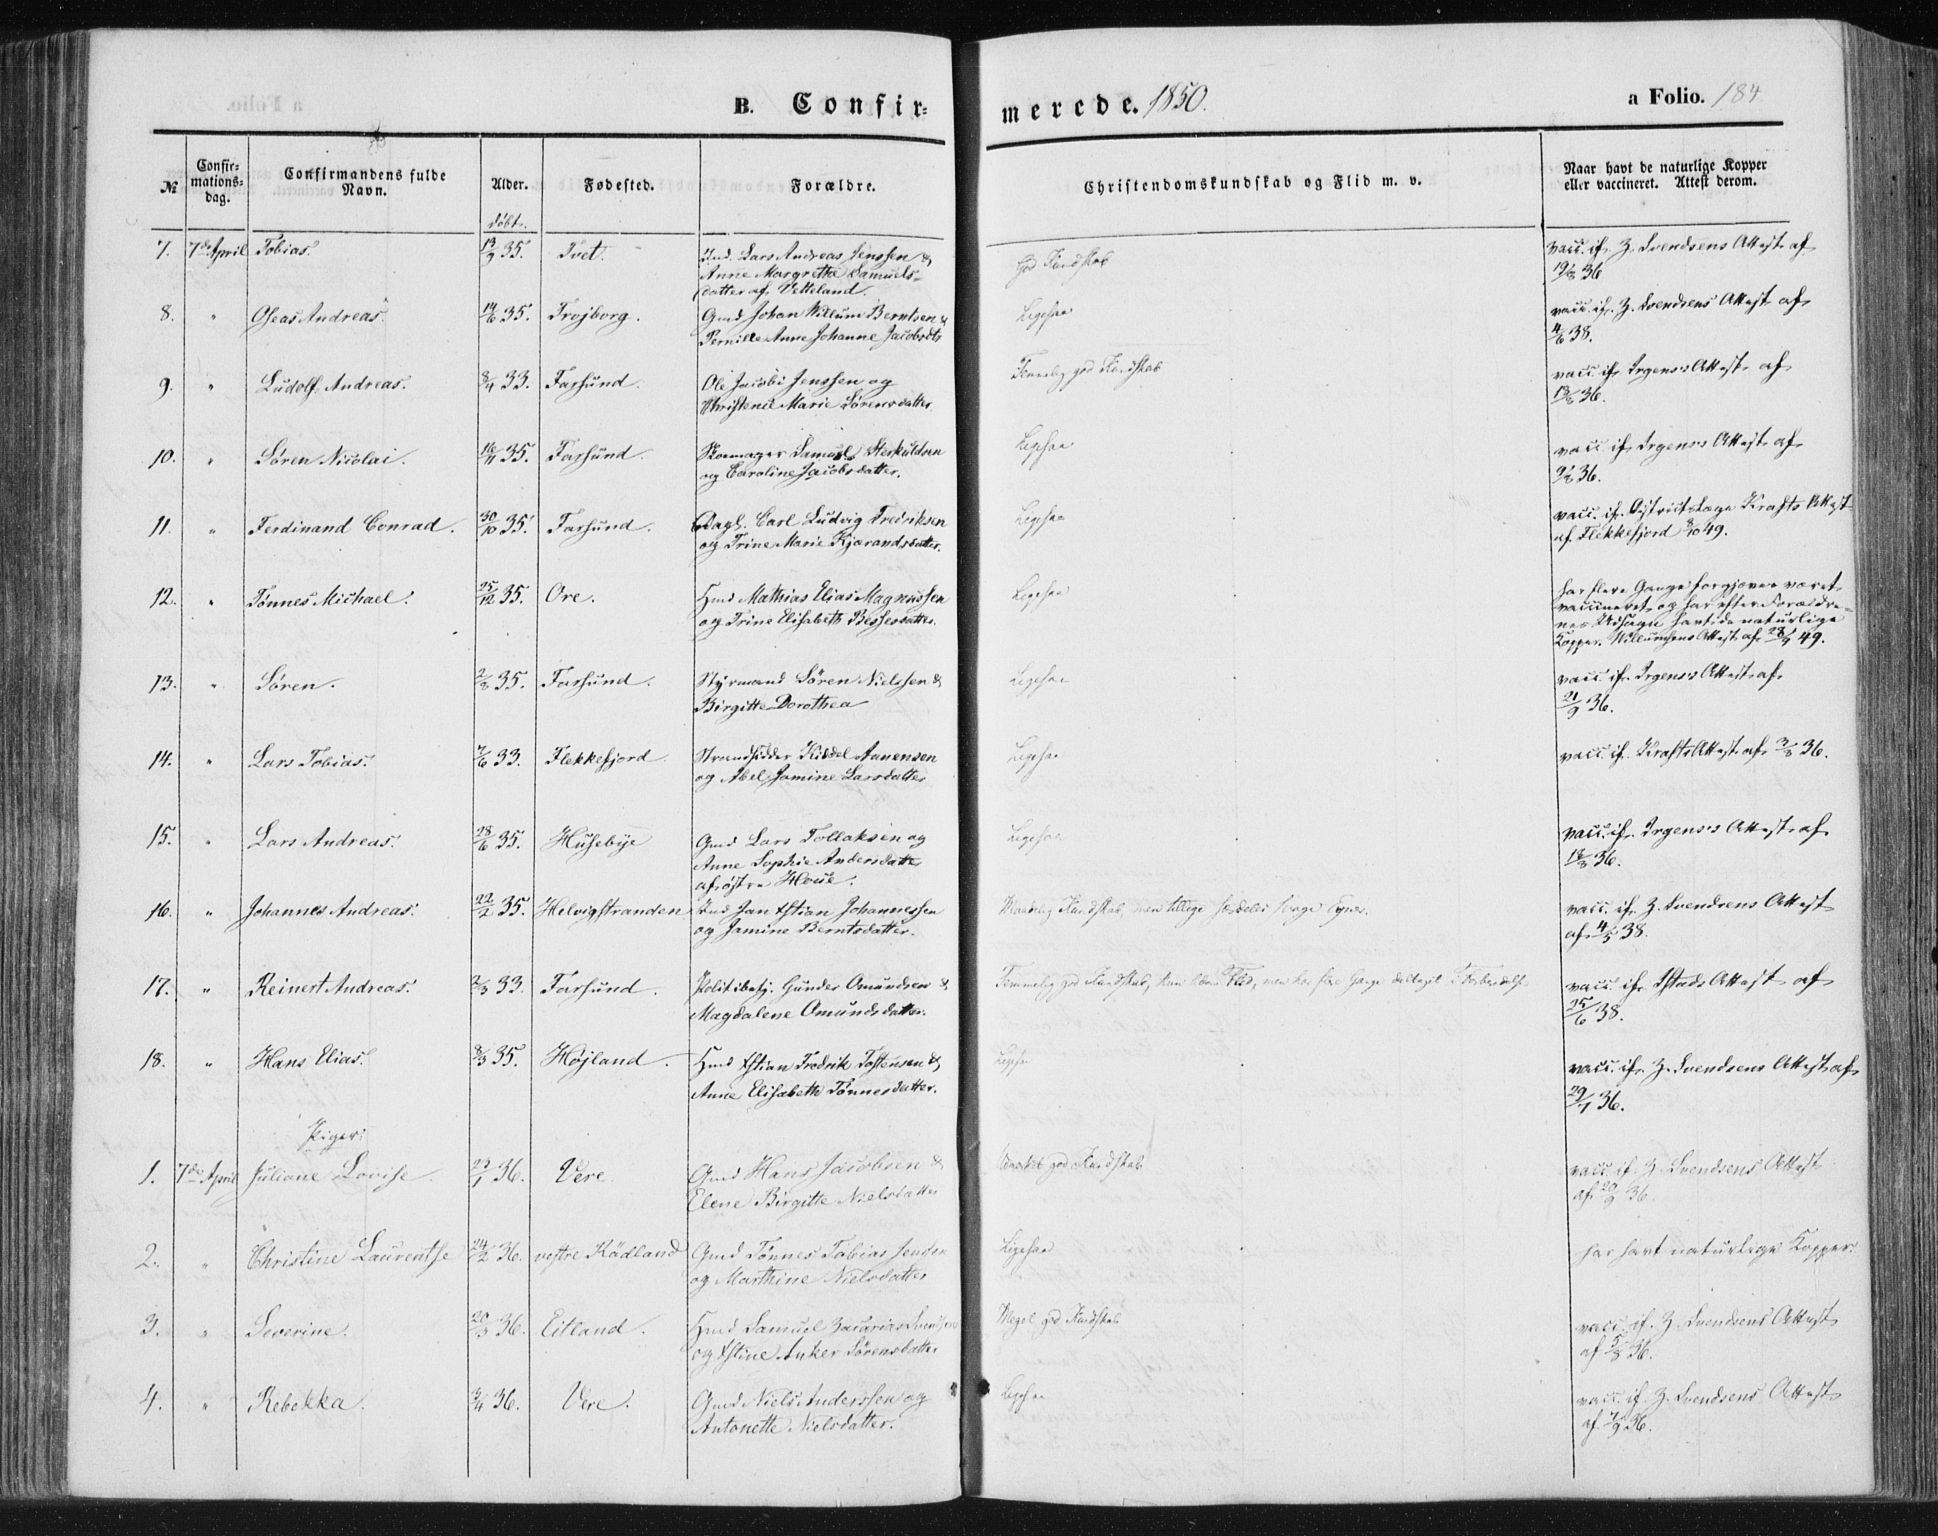 B. Confir-
merede. 1850.
a Folio. 184
№
Confir-
mations-
dag.
Confirmandens fulde
Navn.
Alder.
Fødested.
Forældre.
Christendomskundskab og Flid m. v.
Naar havt de naturlige Kopper
eller vaccineret. Attest derom.
døbt.
7. 7de April Tobias. 13/9 35. Tvet. Lars Andreas Jenssen &
Anne Margrethe Samuels-
datter af Vetteland.
God Kundskab
vacc. if. Z. Svendsens Attest af
36
8. " Oseas Andreas. 14/6 35. Trojborg. Gmd Johan Willum Berntsen &
Pernille Anne Johanne Jacobsdtr
Ligesaa
vacc. if. Z. Svendsens Attest af
4/6 38.
9. " Ludolf Andreas. 8/4 33. Farsund. Ole Jacobi Jenssen og
Christence Marie Sørensdatter
Temmelig god Kundskab
vacc. if. Irgens's Attest af
13/8 36.
10. " Søren Nicolai. 16/11 35. Farsund. Skomager Samuel
og Caroline Jacobsdatter.
Ligesaa
vacc if. Irgens's Attest af
36.
11. " Ferdinand Conrad. 30/10 35. Farsund. Dagl. Carl Ludvig Fredriksen
og Trine Marie Kjærandsdatter.
Ligesaa
vacc. if. Districtslæge Krafts Attest
af Flekkefjord 49.
12. " Tønnes Michael. 25/12 35. Ore. Hmd Mathias Elias Magnussen
og Trine Elisabeth Bessesdatter.
Ligesaa
har flere Gange forgjæves været
vaccineret, og har efter Forældre-
nes Udsagn havt de naturlige
Kopper. Willumsens Attest af 49.
13. " Søren. 2/8 35. Farsund. Styrmand Søren Nielssen &
Birgitte Dorothea
Ligesaa
vacc. if. Irgens's Attest af
21/9 36.
14. " Lars Tobias. 7/6 33. Flekkefjord. Strandsidder Kittel Aanensen
og Abel Jamine Larsdatter
Ligesaa
vacc. if. Krafts Attest af 3/8 36.
15. " Lars Andreas. 28/6 35. Husebye Gmd Lars Tollaksen og
Anne Sophie Andersdatter
af østre Houe.
Ligesaa
vacc. if. Irgens's Attest af
18/8 36.
16. " Johannes Andreas. 22/2 35. Helvigstranden Jan Xstian Johannessen
og Jamine Berntsdatter.
Maadelig Kundskab, men tillige særdeles svage Evner.
vacc. if. Z. Svendsens Attest
af 4/5 38.
17. " Reinert Andreas. 2/3 33. Farsund. Politibetj. Gunder Omundsen &
Magdalene Omundsdatter.
Temmelig god Kundskab, Flid, men har fire Gange deltaget i
vacc. if. Attest af
25/6 38.
18. " Hans Elias. 8/3 35. Højland. Hmd Xstian Fredrik Tostensen &
Anne Elisabeth Tønnesdatter.
Ligesaa
vacc. if. Z. Svendsens Attest af
29/7 36.
Piger:
1. 7de April Juliane Lovise 36. Vere Gmd Hans Jacobsen &
Elene Birgitte Nielsdatter
god Kundskab
vacc. if. Z. Svendsens Attest
af 20/9 36.
2. " Christine Laurentse 24/2 36. vestre Rødland Gmd Tønnes Tobias Jenssen
og Marthine Nielsdatter
Ligesaa
har havt naturlige Kopper.
3. " Severine. 20/3 36. Eitland. Hmd Samuel Zacarias
og Xstine Anker Sørensdatter
Meget god Kundskab
vacc. if. Z. Svendsens Attest
af 5/8 36.
4. " Rebekka. 3/4 36. Vere. Gmd Niels Anderssen og
Antonette Nielsdatter.
Ligesaa
vacc. if. Z. Svendsens Attest
af 7/9 36.